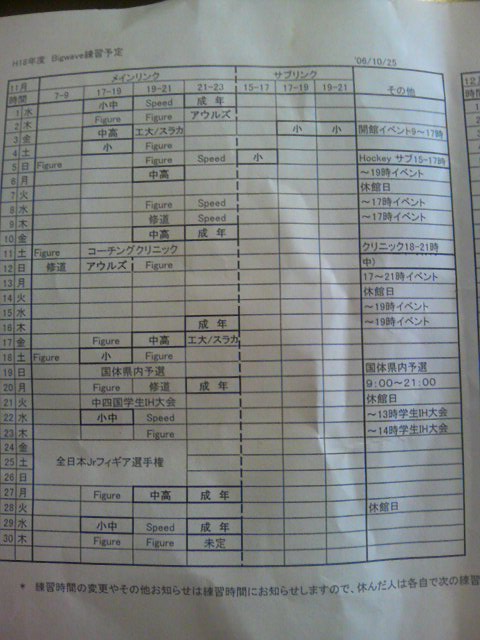 H18年度 Bigwave練習予定 '06/10/25
11月 メインリンク サブリンク その他 12月
時間 7-9 17-19 19-21 21-23 15-17 17-19 19-21 時間
1 水 小中 Speed 成年
2 木 Figure Figure アウルズ
3 金 中高 工大/スラカ 小 小 開館イベント9～17時
4 土 小 Figure
5 日 Figure Figure Speed 小 Hockey サブ15-17時
6 月 中高 ～19時イベント
7 火 休館日
8 水 Figure Speed ～17時イベント
9 木 修道 Speed ～17時イベント
10 金 中高 成年
11 土 Figure コーチングクリニック クリニック18-21時
12 日 修道 アウルズ Figure 中）
13 月 17～21時イベント
14 火 休館日
15 水 ～19時イベント
16 木 成年 ～19時イベント
17 金 Figure 中高 工大/スラカ
18 土 Figure 小 Figure
19 日 国体県内予選 国体県内予選
20 月 Figure 修道 成年 9:00～21:00
21 火 中四国学生IH大会 休館日
22 水 小中 Speed ～13時学生IH大会
23 木 Figure ～14時学生IH大会
24 金
25 土 全日本Jrフィギア選手権
26 日
27 月 Figure 中高 成年
28 火 休館日
29 水 小中 Speed 成年
30 木 Figure Figure 未定
* 練習時間の変更やその他お知らせは練習時間にお知らせしますので、休んだ人は各自で次の練習